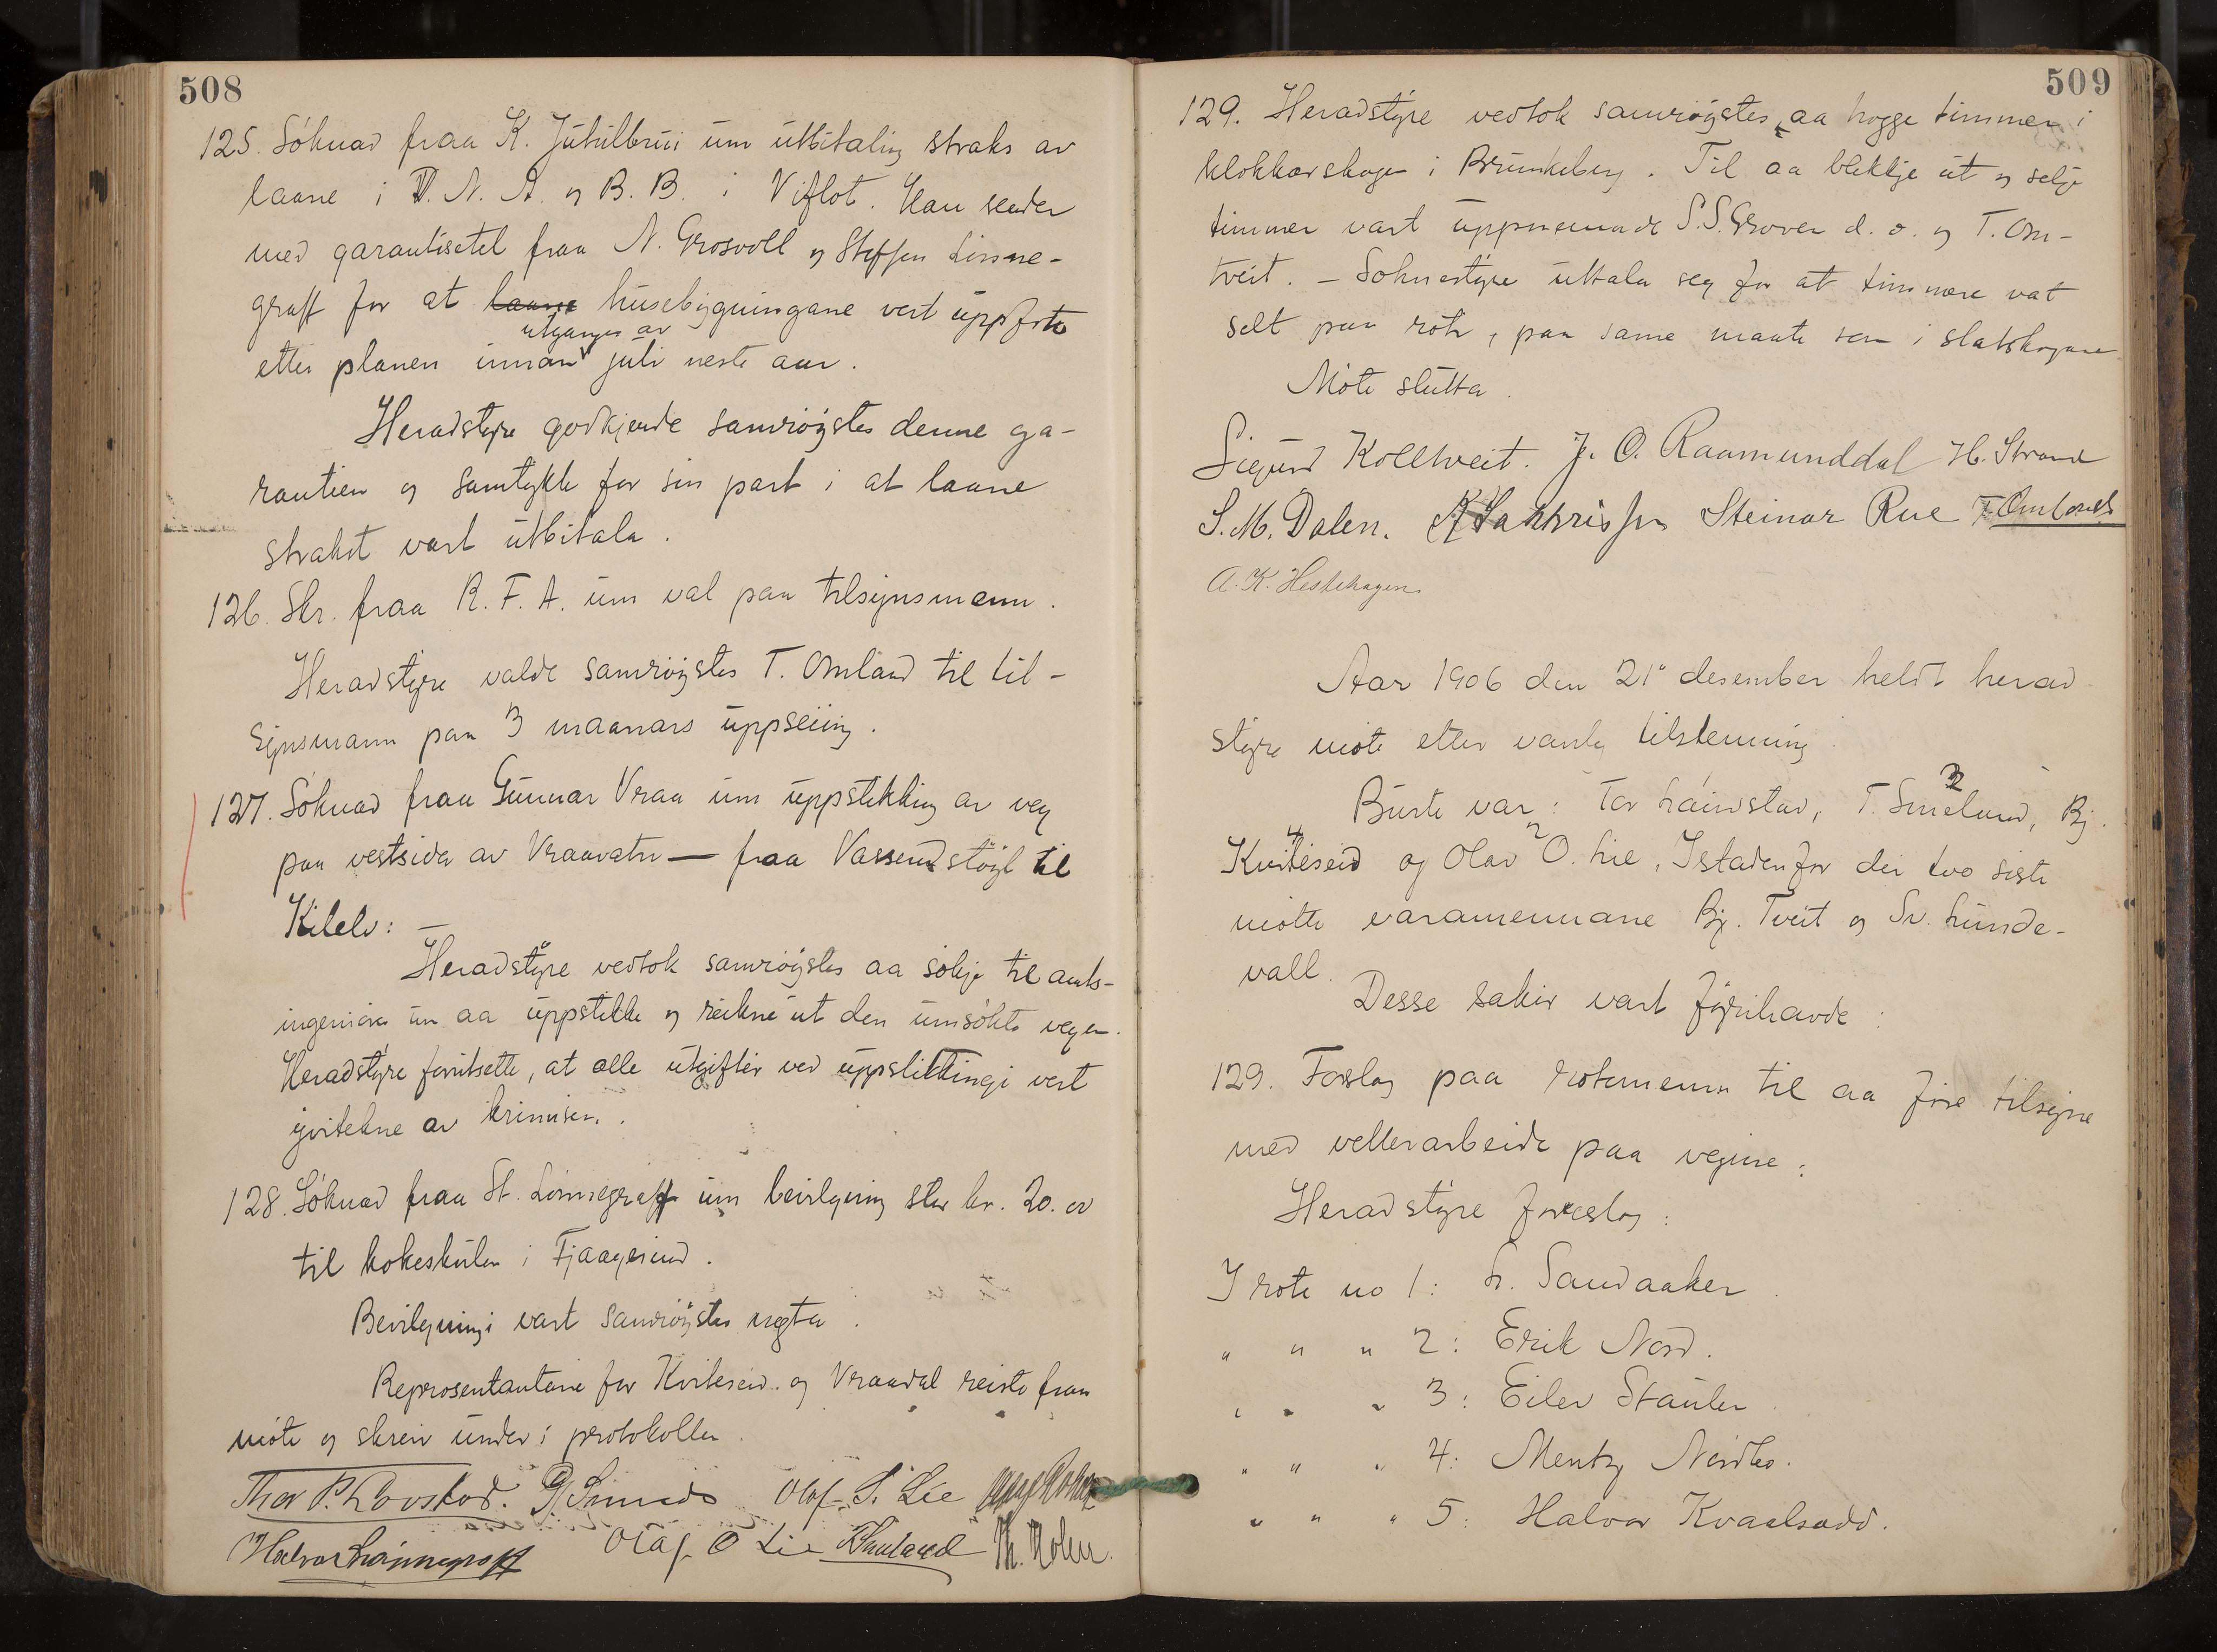 508
125. Söknad fraa K. Jutulbrui um utbitaling straks av
laane i D. N. A. og B. B. i Viflot. Han sender
med garantisetel fraa N. Grosvoll og Steffen Linne-
graff for at laane husebygningane vert uppförte
utgangen av
etter planen innan juli neste aar.
Heradstyre godkjende samröystes denne ga-
rantien og samtykkte for sin part i at laane
strakst vart utbitala.
126. Skr. fraa R. F. A. um val paa tilsynsmann.
Heradstyre valde samröystes T. Omland til til-
synsmann paa 3 maanars uppseiing.
127. Söknad fraa Gunnar Vraa um uppstikking av veg
paa vestsida av Vraavatn — fraa Vassendstöyl til
Kilelv: —
Heradstyre vedtok samröystes aa sökje til amts-
ingeniören um aa uppstikke og reikne ut den umsökte vegen.
Heradstyre forutsette, at alle utgifter ved uppstikkingi vert
yvitekne av
128. Söknad fraa St. Lönnegraff um beivlgning stor kr. 20.00
til kokeskulen i Fjaagesund.
Bevilgningi vart samröystes negta.
Representantane for Kviteseid og Vraadal reiste fraa
möte og skreiv under i protokollen.
Thor P. Lovstad. Olaf S. Lie
Halvor Lönnegraff Olaf O Lie T. Smeland Th. Holen.
509
129. Heradstyre vedtok samröystes aa hogge timmer i
klokkarskogen i Brunkeberg. Til aa blekkje ut og selje
timmer vart uppnemnde S. S. Groven d. o. og T. Om-
tveit. – Soknestyre uttala seg for at timmere vat
selt paa rot, paa same maate som i statskogane
Möte slutta.
Sigurd Kolltveit. J. O. Raamunddal H. Strand
S. M. Dalen. Steinar Rue
A. K. Hestehagen
Aar 1906 den 21 desember heldt herad
styre möte etter vanleg tilstemning.
Burte var: Tor Laüvstad, T. Smeland, Bj.
Kviteseid og Olav O. Lie. Istaden for dei two siste
mötte varamennane Bj. Tveit og Sv. Lunde-
vall.
Desse sakir vart fyrihavde:
129. Forslag paa rotemenn til aa före tilsyne
med vetterarbeide paa vegine:
Heradstyre foreslog:
I rote no 1: L. Sandaaker.
" " " 2: Erik Nord.
" " " 3: Eilev Staulen.
" " " 4: Mentz Nordbo.
" " " 5: Halvor Kvaalsodd.